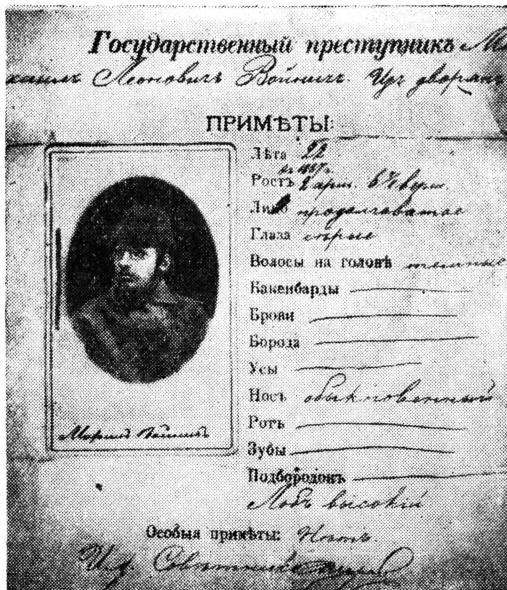 Государственный преступникъ Ми-
хаилъ Леоновичъ Войничъ. Изъ дворянъ
ПРИМѢТЫ:
Лѣта 22
въ 1887 г.
Ростъ 2 арш. 6 7/8 верш.
Лицо продолговатое
Глаза сѣрые
Волосы на головѣ темные
Бакенбарды
Брови
Борода
Усы
Носъ обыкновенный
Ротъ
Зубы
Подбородокъ
Лобъ высокій
Особыя примѣты:
И. д. Совѣтника